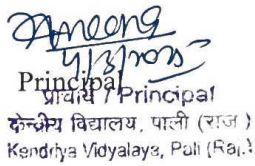 Principal
प्राचार्य / Principal
केन्द्रीय विद्यालय, पाली (राज)
Kendriya Vidyalaya, Pali (Raj.)